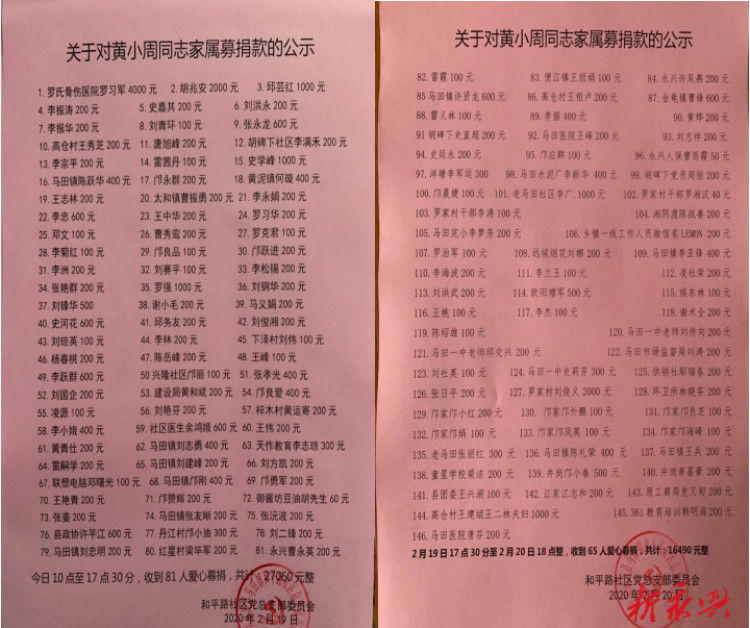 关于对黄小周同志家属募捐款的公示
1. 罗氏骨伤医院罗习军 4000 元 2. 胡兆安 2000 元 3. 邱芸红 1000 元
4. 李振涛 200 元 5. 史嘉其 200 元 6. 刘洪永 200 元
7. 李振华 200 元 8. 刘青环 100 元 9. 张永龙 600 元
10. 高仓村王秀芝 200 元 11. 唐旭峰 200 元 12. 胡碑下社区李满禾 200 元
13. 李宗平 200 元 14. 雷茜丹 100 元 15. 史学峰 1000 元
16. 马田镇陈跃华 400 元 17. 邝永群 200 元 18. 黄泥镇何璇 400 元
19. 王志林 200 元 20. 太和镇曹振勇 200 元 21. 李永娟 200 元
22. 李忠 600 元 23. 王中华 200 元 24. 罗习华 200 元
25. 邓文 100 元 26. 曹秀鸾 200 元 27. 罗克君 100 元
28. 李菊红 100 元 29. 邝良品 100 元 30. 邝跃进 200 元
31. 李洲 200 元 32. 刘赛平 100 元 33. 李松锡 200 元
34. 张艳群 200 元 35. 罗强 1000 元 36. 刘钢华 200 元
37. 刘锋华 500 38. 谢小毛 200 元 39. 马义娟 200 元
40. 史河花 600 元 41. 邱务友 200 元 42. 刘俊湘 200 元
43. 刘琼英 100 元 44. 李林 200 元 45. 下泽村刘伟 100 元
46. 杨春桃 200 元 47. 陈岳峰 200 元 48. 王峰 100 元
49. 李跃群 600 元 50 兴隆社区邝丽 100 元 51. 张孝光 400 元
52. 刘国企 200 元 53. 建设局黄和斌 200 元 54. 邝良爱 400 元
55. 凌源 100 元 56. 刘艳芬 200 元 57. 梓木村黄运寄 200 元
58. 李小娥 400 元 59. 社区医生余鸿娥 600 元 60. 王伟 200 元
61. 黄青仕 200 元 62. 马田镇刘志勇 400 元 63. 天作教育李志琼 300 元
64. 雷嗣学 200 元 65. 马田镇刘建峰 200 元 66. 刘方凯 200 元
67. 联想电脑邓曙光 100 元 68. 马田镇邝刚 400 元 69. 邝勇军 200 元
70. 王艳青 200 元 71. 邝赞辉 200 元 72. 御酱坊豆油胡先生 60 元
73. 张姜 200 元 74. 马田镇张友晰 200 元 75. 张沅波 200 元
76. 县政协许平江 600 元 77. 丹江村邝小油 300 元 78. 刘二锋 200 元
79. 马田镇刘忠明 200 元 80. 红星村梁华军 200 元 81. 永兴曹永英 200 元
今日 10 点至 17 点 30 分，收到 81 人爱心募捐，共计：27060 元整
和平路社区党总支部委员会
2020 年 2 月 19 日
关于对黄小周同志家属募捐款的公示
82. 雷霞 100 元 83. 便江镇王丽娟 100 元 84. 永兴许凤燕 200 元
85 马田镇许贤龙 600 元 86. 高仓村王祖卢 200 元 87. 金龟镇曹锋 600 元
88. 雷义林 100 元 89. 李挪 400 元 90. 黄烨 200 元
91 胡碑下史直超 200 元 92. 马田医院王峰 200 元 93. 刘志祥 200 元
94. 史廷永 200 元 95. 邝应群 100 元 96. 永兴人保曹雨霞 50 元
97. 洋塘李军运 300 98. 马田水泥厂李新华 400 元 99. 胡碑下党员周恒 200 元
100. 邝晨婕 100 元 101. 老马田社区李广. 1000 元 102. 罗家村干部罗湘汉 40 元
103. 罗家村干部李涛 100 元 104. 湘阴渡陈战春 200 元
105. 马田完小李梦芳 200 元 106. 乡镇一线工作人员微信名 LEMON 200 元
107. 罗治军 100 元 108. 远候烟花刘娜 200 元 109. 马田镇李亚锋 400 元
110. 李海波 200 元 111. 李兰玉 100 元 112. 凌社荣 200 元
113. 刘洪武 200 元 114. 欧阳增军 500 元 115. 侯东林 100 元
116. 王桃 100 元 117. 李杰 100 元 118. 谢术全 200 元
119. 陈绍雄 100 元 120. 马田一中老师刘伟向 200 元
121. 马田一中老师邱交兴 200 元 122. 马田市场监督局刘涛 200 元
123. 刘社英 100 元 124. 马田一中史莉芬 300 元 125. 供销社鄢瑞春 200 元
126. 张日平 200 元 127. 罗家村刘俊义 2000 元 128. 环卫所林晓芬 200 元
129. 邝家邝小红 200 元 130. 邝家邝外鹏 100 元 131. 邝家邝良芝 100 元
132. 邝家邝娟 100 元 133. 邝家邝凤英 100 元 134. 邝家邝海峰 100 元
135. 老马田张丽红 300 元 136. 马田镇陈礼荣 400 元 137. 马田镇王兵 200 元
138. 童星学校梁洁 200 元 139. 井岗邝小春 500 元 140. 井岗李喜豪 200 元
141. 县团委王兴湖 100 元 142. 江家江志和 200 元 143. 原工商局史又旬 200 元
144. 高仓村王建斌王二林夫妇 1000 元 145. 361 教育培训赖明海 200 元
146. 马田医院唐芬 200 元
2 月 19 日 17 点 30 分至 2 月 20 日 18 点整，收到 65 人爱心募捐，共计：16490 元整
和平路社区党总支部委员会
2020 年 2 月 20 日
新永兴